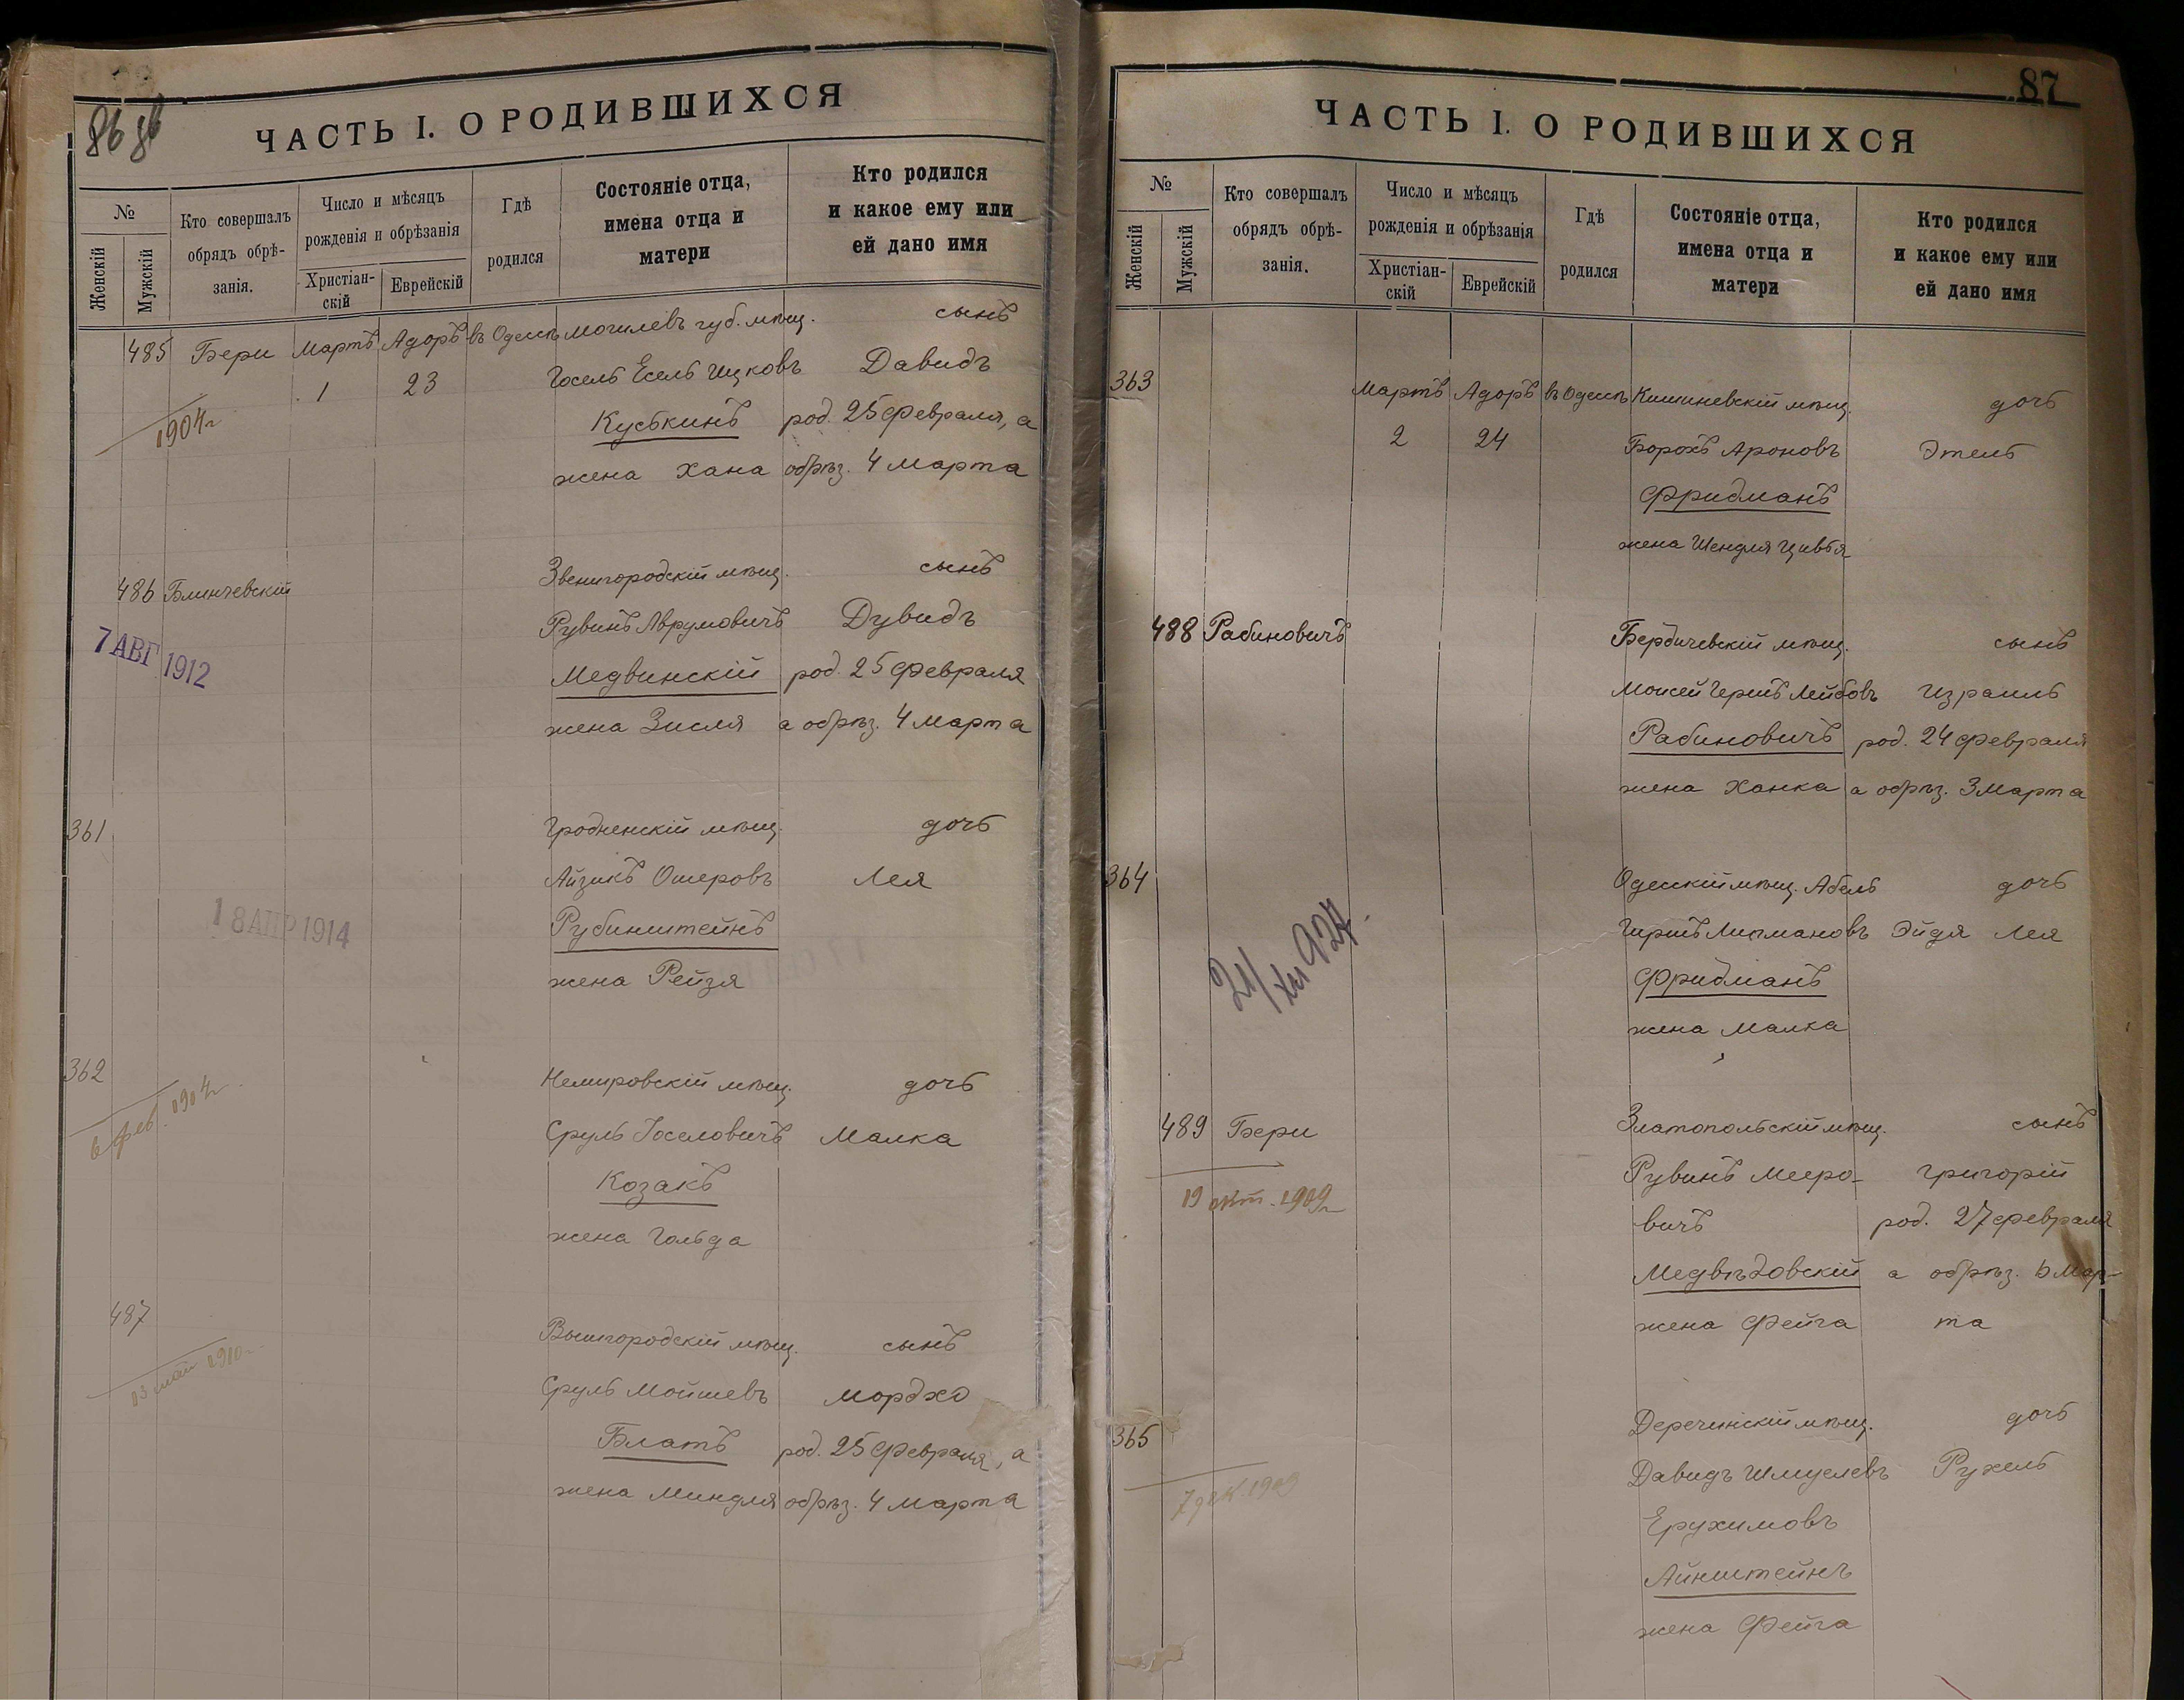 86 86
ЧАСТЬ I. О РОДИВШИХСЯ
№
Женскій
Мужскій
Кто совершалъ
обрядъ обрѣ-
занія.
Число и мѣсяцъ
рожденія и обрѣзанія
Христіан-
скій
Еврейскій
Гдѣ
родился
Состояніе отца,
имена отца и
матери
Кто родился
и какое ему или
ей дано имя
485 Бери Мартъ Адоръ въ Одессѣ Могилевъ губ. мѣщ. сынъ
1 23 Іосель Есель Ицковъ Давидъ
1904 г. Куськинъ род. 25 февраля, а
жена Хана обрѣз. 4 марта
486 Блинчевскій Звенигородскій мѣщ. сынъ
Рувинъ Аврумовичъ Дувидъ
7 АВГ 1912 Медвинскій род. 25 февраля
жена Зисля а обрѣз. 4 марта
361 Гродненскій мѣщ. дочь
Айзикъ Ошеровъ Лея
18 АПР 1914 Рубинштейнъ
жена Рейзя
362 Немировскій мѣщ. дочь
6 фев. 1904 г. Сруль Іоселовичъ Малка
Козакъ
жена Гольда
487 Вышгородскій мѣщ. сынъ
13 мая 1910 г. Сруль Мойшевъ Мордхо
Блатъ род. 25 февраля, а
жена Миндля обрѣз. 4 марта
87
ЧАСТЬ I. О РОДИВШИХСЯ
№
Женскій
Мужскій
Кто совершалъ
обрядъ обрѣ-
занія.
Число и мѣсяцъ
рожденія и обрѣзанія
Христіан-
скій
Еврейскій
Гдѣ
родился
Состояніе отца,
имена отца и
матери
Кто родился
и какое ему или
ей дано имя
363 Мартъ Адоръ въ Одессѣ Кишиневскій мѣщ. дочь
2 24 Борохъ Ароновъ Этель
Фридманъ
жена Шендля Цивья
488 Рабиновичъ Бердичевскій мѣщ. сынъ
Моисей Гершъ Лейбовъ Израиль
Рабиновичъ род. 24 февраля
жена Ханка а обрѣз. 3 марта
364 Одесскій мѣщ. Абель дочь
Гиршъ Липмановъ Эйдя Лея
21/XII 927. Фридманъ
жена Малка
489 Бери Златопольскій мѣщ. сынъ
19 окт. 1909 г. Рувинъ Меро-
вичъ Григорій
род. 27 февраля
Медвѣдовскій а обрѣз. 6 мар-
жена Фейга та
365 Деречинскій мѣщ. дочь
7 дек. 1909 Давидъ Шмулевъ Рухель
Ерухимовъ
Айнштейнъ
жена Фейга